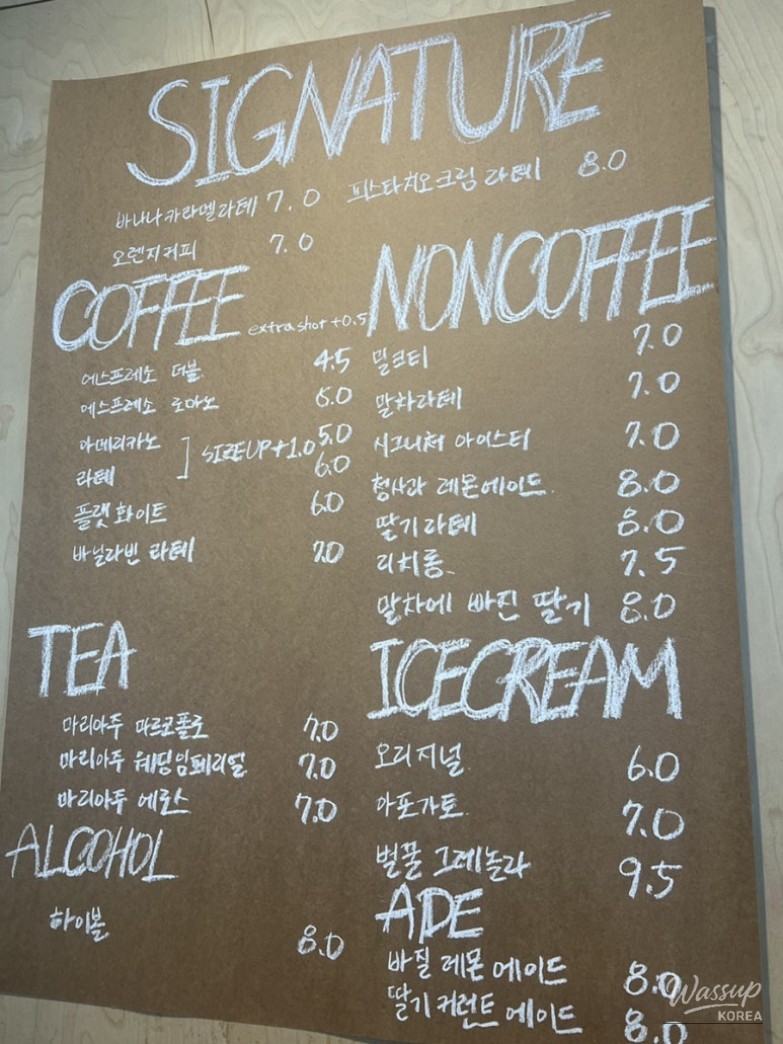 SIGNATURE
바나나카라멜라떼 7.0
피스타치오크림 라떼 8.0
오렌지커피 7.0
COFFEE extra shot +0.5
에스프레소 더블 4.5
에스프레소 로마노 5.0
아메리카노 5.0
라떼 6.0
SIZEUP+1.0
플랫 화이트 6.0
바닐라빈 라떼 7.0
NONCOFFEE
밀크티 7.0
말차라떼 7.0
시그니처 아이스티 7.0
청사과 레몬에이드 8.0
딸기라떼 8.0
리치롱 7.5
말차에 빠진 딸기 8.0
TEA
마리아주 마르코폴로 7.0
마리아주 웨딩임페리얼 7.0
마리아주 에로스 7.0
ALCOHOL
하이볼 8.0
ICECREAM
오리지널 6.0
아포가토 7.0
벌꿀 그래놀라 9.5
ADE
바질 레몬에이드 8.0
딸기커런트에이드 8.0
Wassup
KOREA